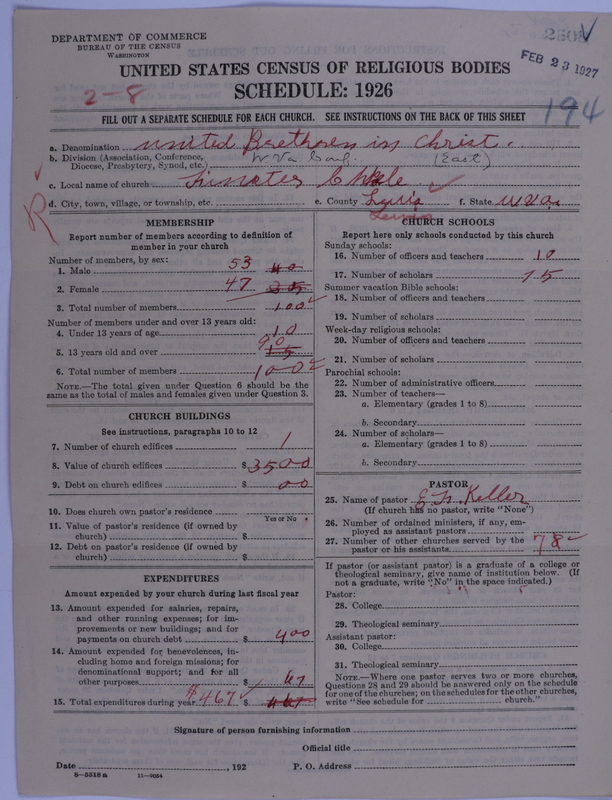 DEPARTMENT OF COMMERCE
BUREAU OF THE CENSUS
WASHINGTON
2508
FEB 23 1927
UNITED STATES CENSUS OF RELIGIOUS BODIES
SCHEDULE: 1926
2-8
194
FILL OUT A SEPARATE SCHEDULE FOR EACH CHURCH. SEE INSTRUCTIONS ON THE BACK OF THIS SHEET
a. Denomination United Brethren in Christ.
b. Division (Association, Conference, Diocese, Presbytery, Synod, etc.) W Va Conf. (East)
c. Local name of church
d. City, town, village, or township, etc. e. County Lewis f. State W Va.
Lewis
R
MEMBERSHIP
Report number of members according to definition of member in your church
Number of members, by sex:
1. Male 53 40
2. Female 47
3. Total number of members 100
Number of members under and over 13 years old:
4. Under 13 years of age 10
5. 13 years old and over 90 15
6. Total number of members 100
NOTE.—The total given under Question 6 should be the same as the total of males and females given under Question 3.
CHURCH BUILDINGS
See instructions, paragraphs 10 to 12
7. Number of church edifices 1
8. Value of church edifices $3500
9. Debt on church edifices $ 00
10. Does church own pastor's residence
Yes or No
11. Value of pastor's residence (if owned by church) $
12. Debt on pastor's residence (if owned by church) $
EXPENDITURES
Amount expended by your church during last fiscal year
13. Amount expended for salaries, repairs, and other running expenses; for improvements or new buildings; and for payments on church debt $ 400
14. Amount expended for benevolences, including home and foreign missions; for denominational support; and for all other purposes $ 67
15. Total expenditures during year $467 $ 467
CHURCH SCHOOLS
Report here only schools conducted by this church
Sunday schools:
16. Number of officers and teachers 10
17. Number of scholars 75
Summer vacation Bible schools:
18. Number of officers and teachers
19. Number of scholars
Week-day religious schools:
20. Number of officers and teachers
21. Number of scholars
Parochial schools:
22. Number of administrative officers
23. Number of teachers—
a. Elementary (grades 1 to 8)
b. Secondary
24. Number of scholars—
a. Elementary (grades 1 to 8)
b. Secondary
PASTOR
25. Name of pastor Keller
(If church has no pastor, write "None")
26. Number of ordained ministers, if any, employed as assistant pastors
27. Number of other churches served by the pastor or his assistants 78
If pastor (or assistant pastor) is a graduate of a college or theological seminary, give name of institution below. (If not a graduate, write "No" in the space indicated.)
Pastor:
28. College
29. Theological seminary
Assistant pastor:
30. College
31. Theological seminary
NOTE.—Where one pastor serves two or more churches, Questions 28 and 29 should be answered only on the schedule for one of the churches; on the schedules for the other churches, write "See schedule for church."
Signature of person furnishing information
Official title
Date , 192 P. O. Address
8-5518 a 11-9054